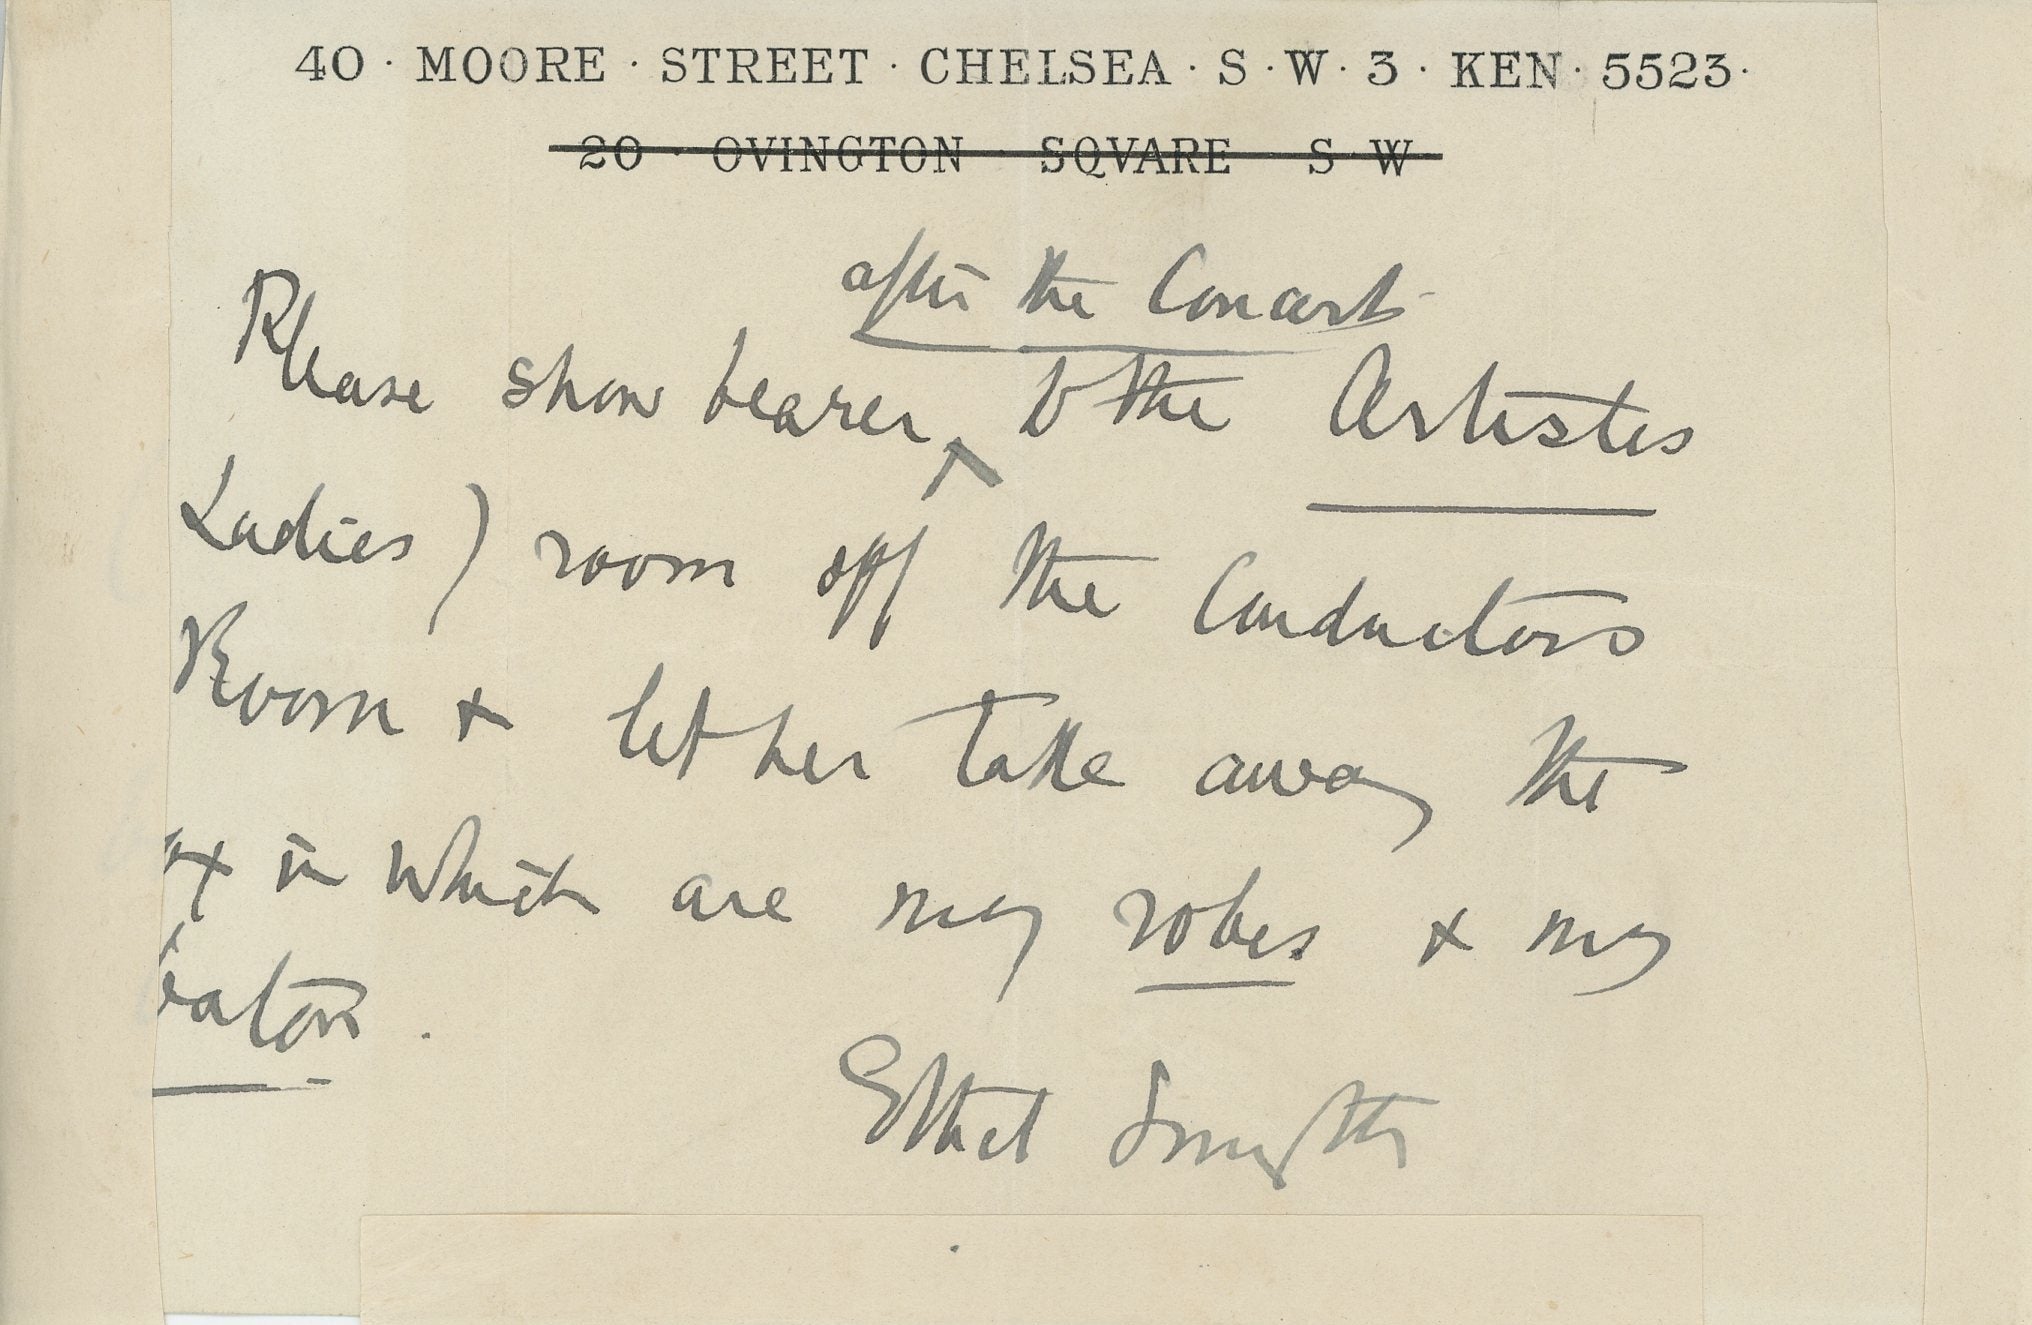 40 · MOORE · STREET · CHELSEA · S · W · 3 · KEN · 5523 ·
20 · OVINGTON SQVARE S W
after the Concert
Please show bearer ^ to the Artistes
Ladies) room off the Conductors
Room + let her take away the
ox in which are my robes + my
baton.
Ethel Smyth